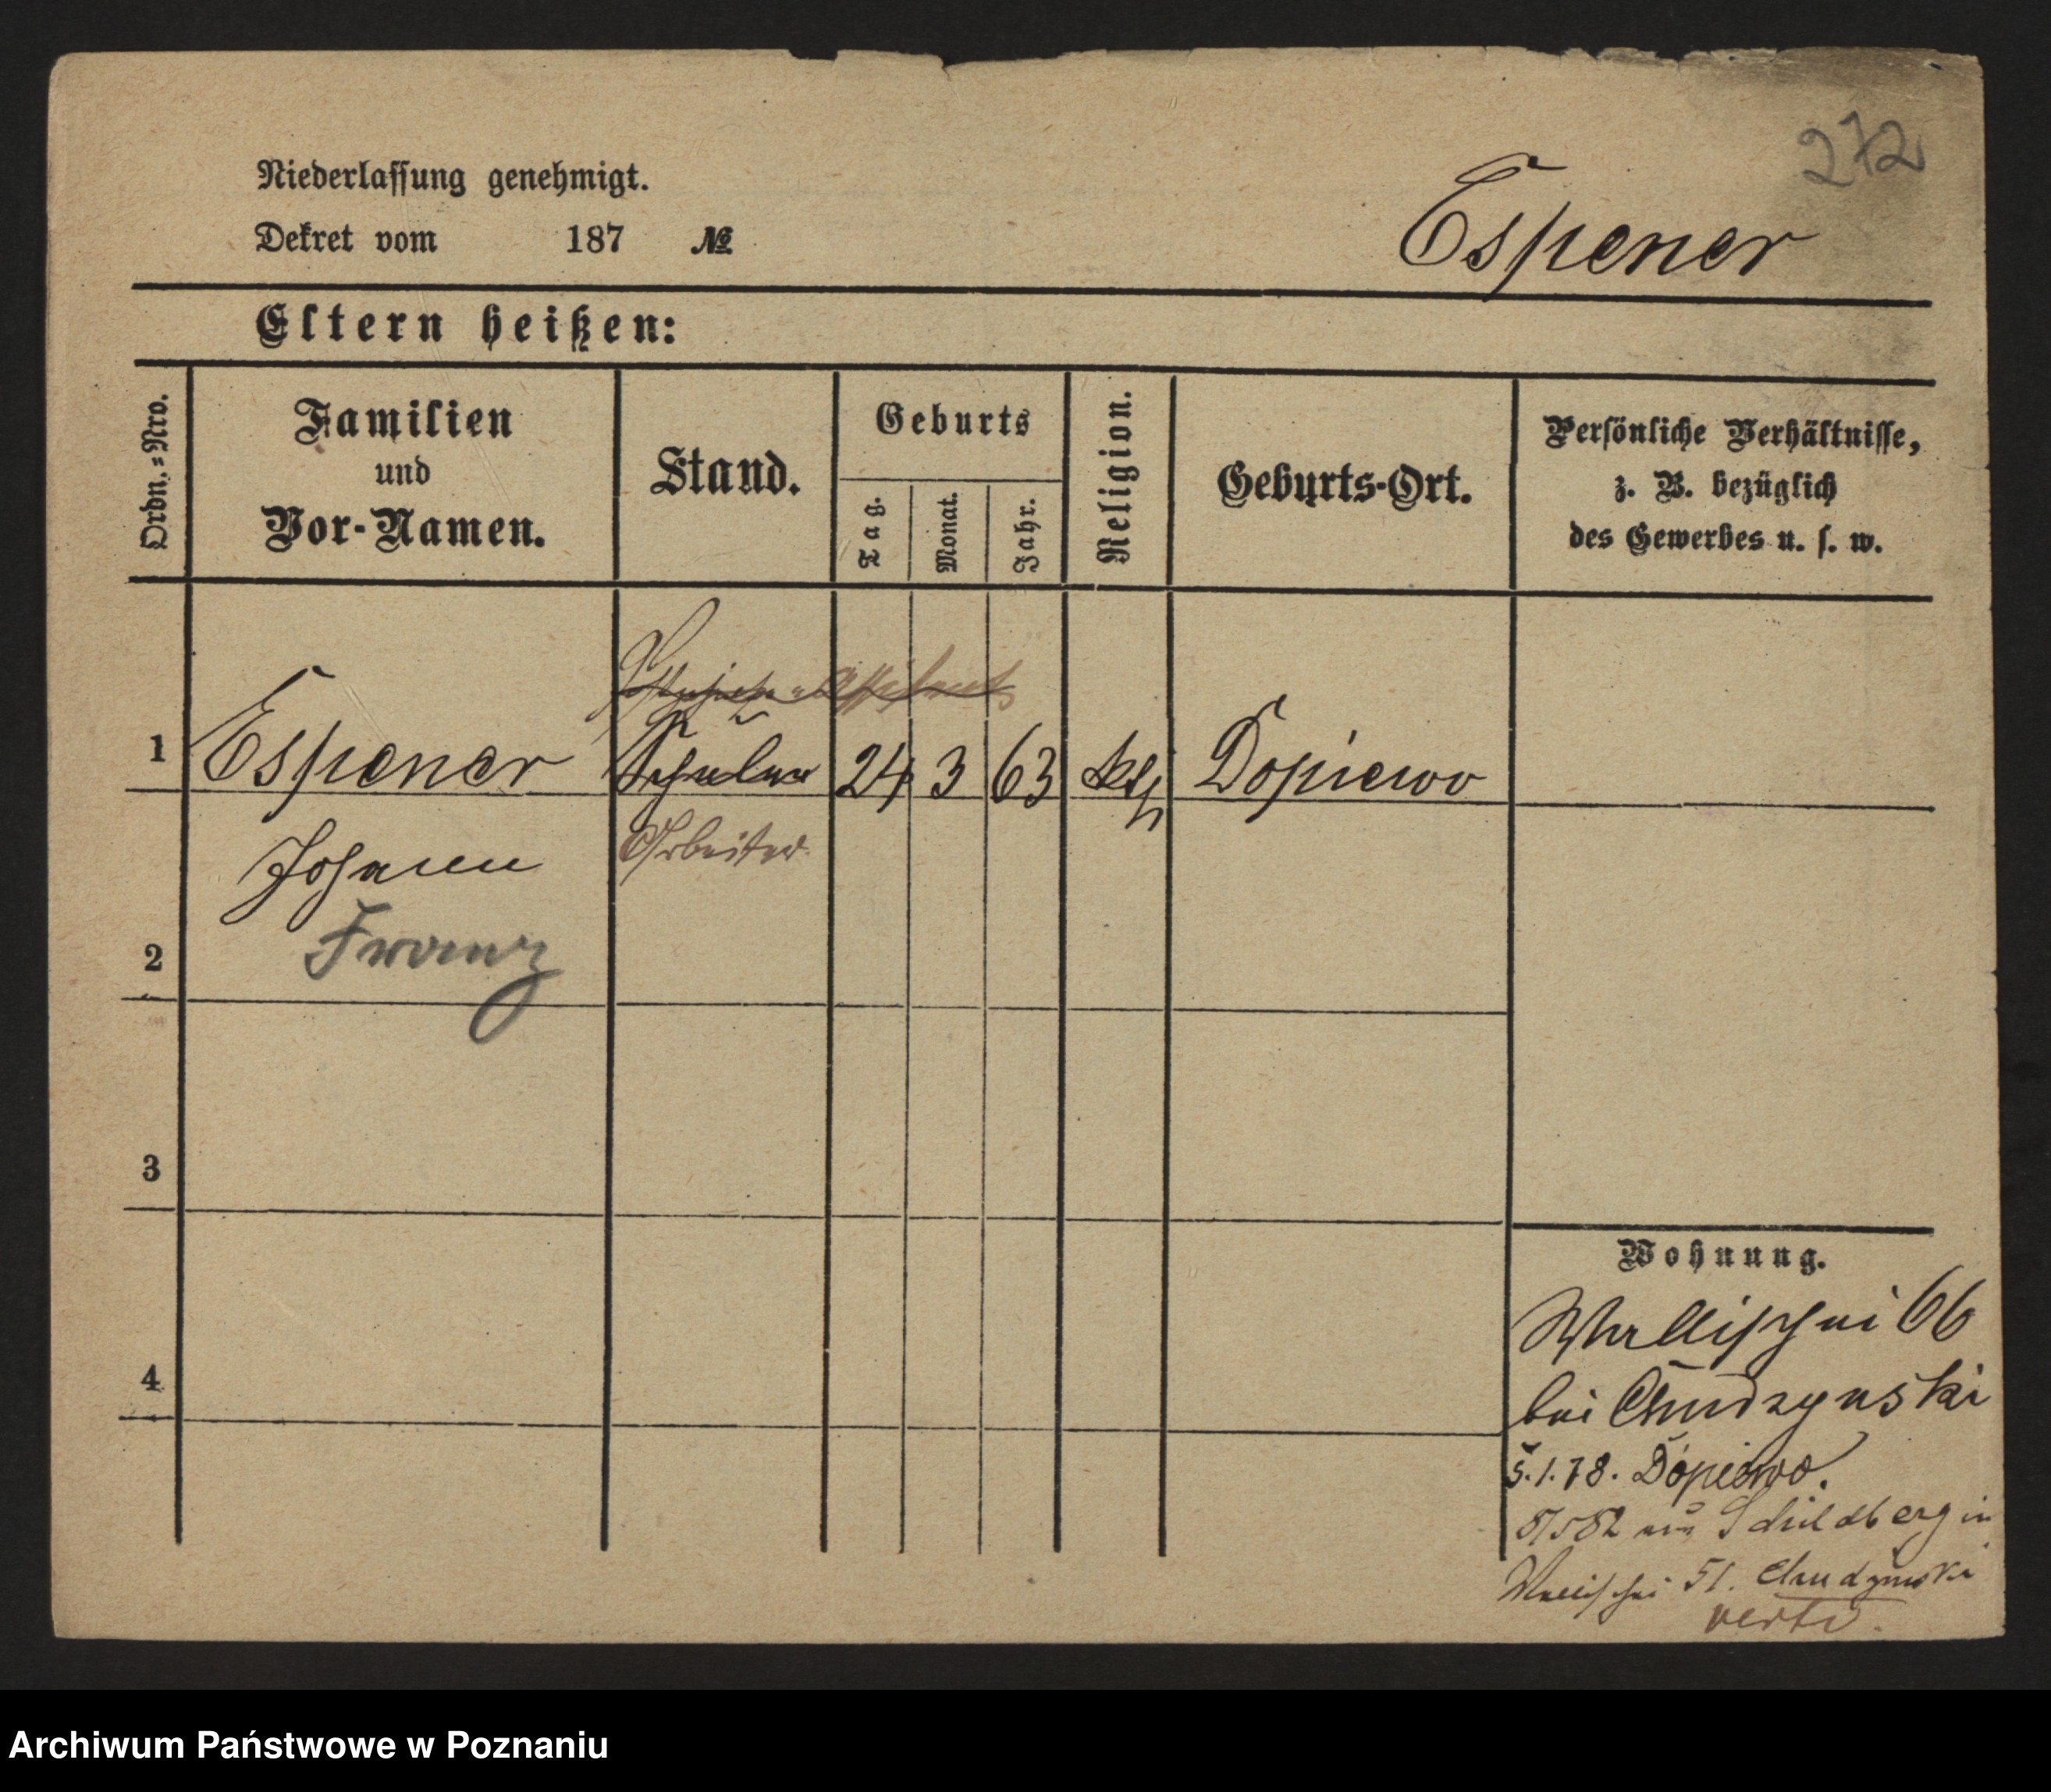 272
Niederlassung genehmigt.
Dekret vom 187 №
Espener
Eltern heißen:
Ordn.=Nro.
Familien
und
Vor-Namen.
Stand.
Geburts
Tag.
Monat.
Jahr.
Religion.
Geburts-Ort.
Persönliche Verhältnisse,
z. B. bezüglich
des Gewerbes u. s. w.
1 Espener Schüler 24 3 63 kth Dopiewo
Johann Arbeiter
2 Franz
3
4
Wohnung.
Wallischei 66
bei Chudzynski
5.1.78. Dopiewo.
8/5 82 aus Schildberg in
Wallischei 51. Chudzynski
verte.
Archiwum Państwowe w Poznaniu